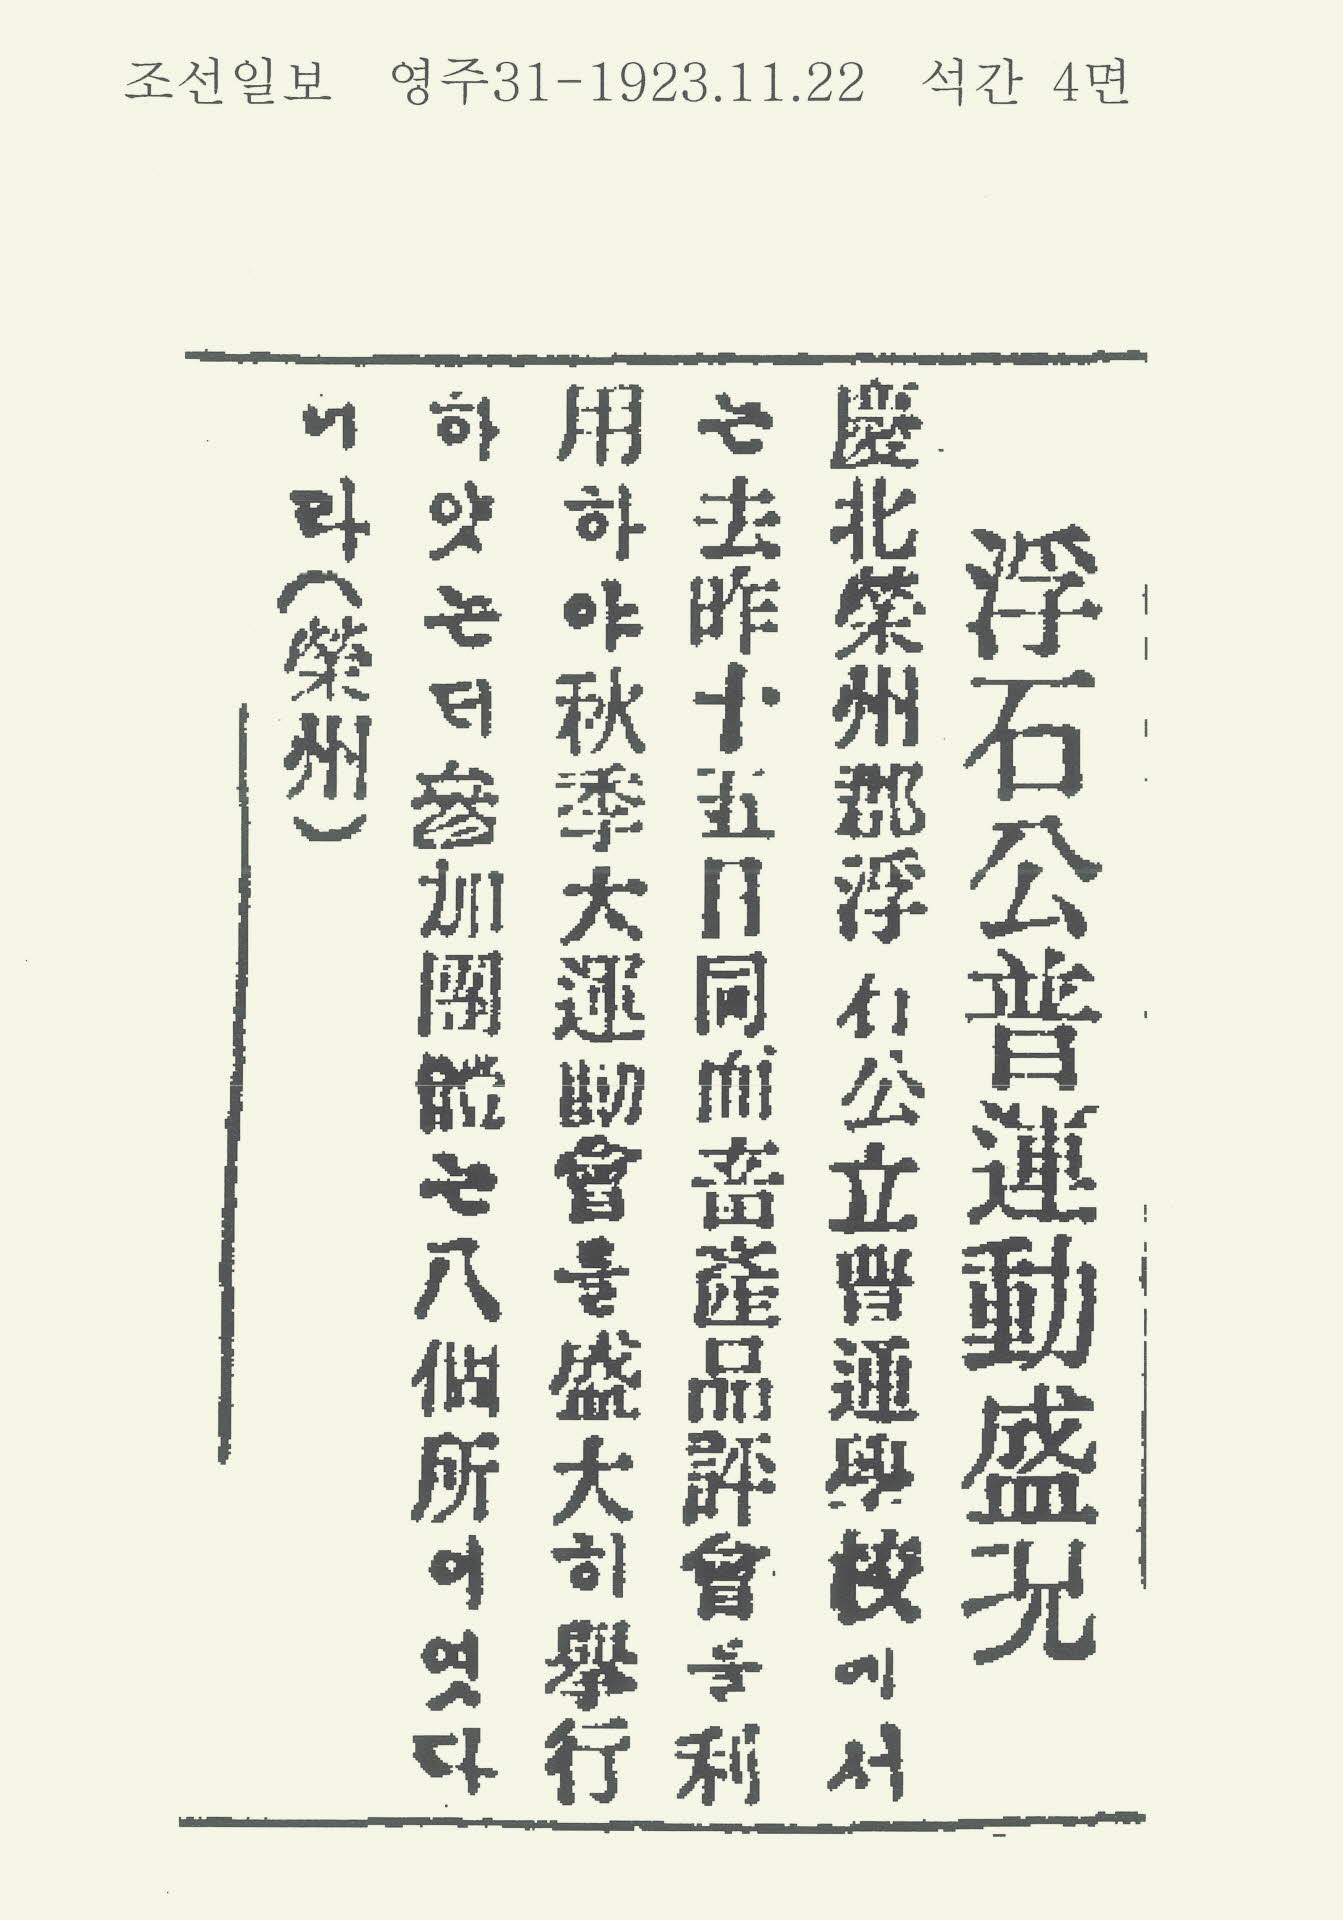 조선일보 영주31-1923.11.22 석간 4면
浮石公普運動盛況
慶北榮州郡浮石公立普通學校에서
는去昨十五日同面畜產品評會를利
用하야秋季大運動會를盛大히擧行
하얏는데參加團體는八個所이엿다
더라(榮州)